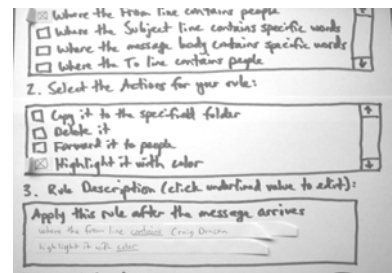 Where the From line contains people
Where the Subject line contains specific words
Where the message body contains specific words
Where the To line contains people
2. Select the Actions for your rule:
Copy it to the specified folder
Delete it
Forward it to people
Highlight it with color
3. Rule Description (click underlined value to edit):
Apply this rule after the message arrives
Where the from line contains Craig
highlight it with color